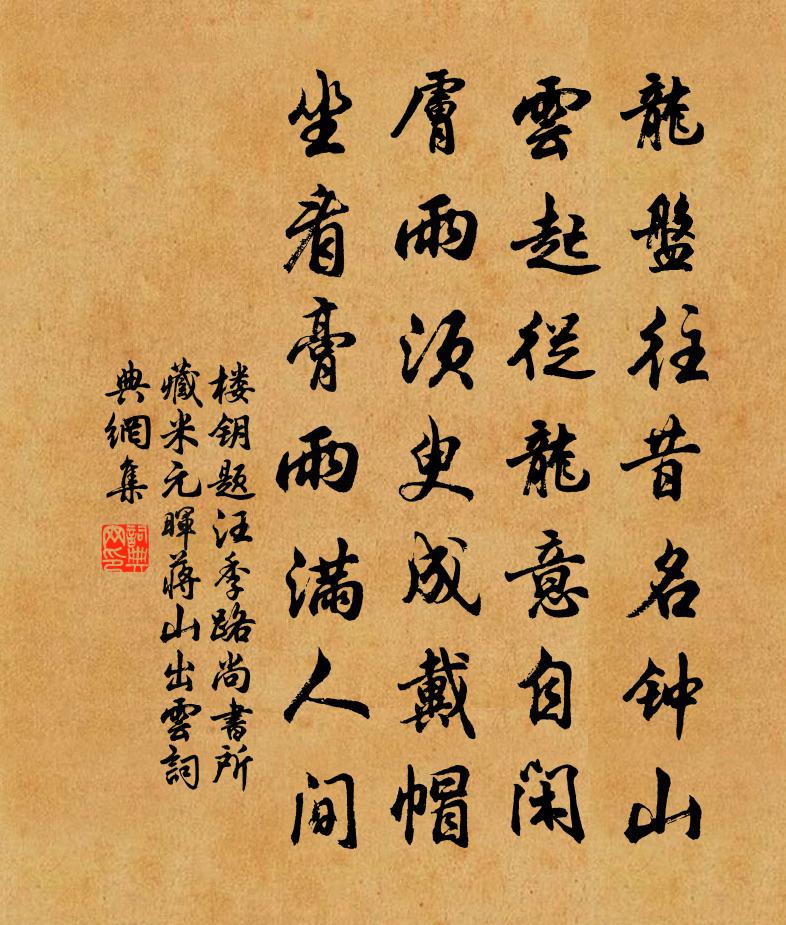 龍盤往昔名钟山
雲起從龍意自閑
膚雨须臾成戴帽
坐看膏雨滿人間
楼钥题汪季路尚書所
藏米元暉蔣山出雲詞
典網集
詞典网印